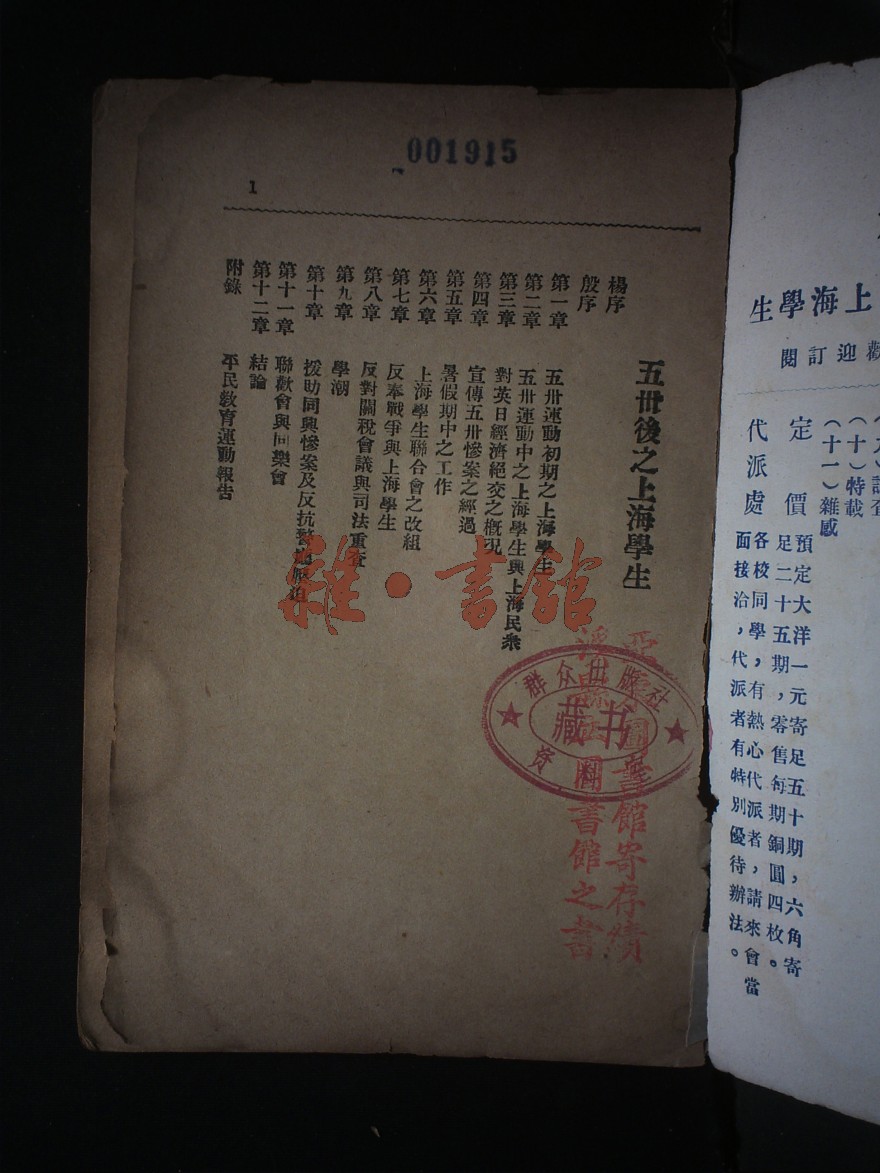 001915
1
五卅後之上海學生
楊序
殷序
第一章 五卅運動初期之上海學生
第二章 五卅運動中之上海學生與上海民衆
第三章 對英日經濟絕交之槪況
第四章 宣傳五卅慘案之經過
第五章 暑假期中之工作
第六章 上海學生聯合會之改組
第七章 反奉戰爭與上海學生
第八章 反對關稅會議與司法重查
第九章 學潮
第十章 援助同興慘案及反抗警廳壓迫
第十一章 聯歡會與同樂會
第十二章 結論
附錄 平民敎育運動報告
雜·書館
群众出版社
藏书
資料
圖書館寄存績
圖書館之書
上海學生
歡迎訂閱
(十)特載
(十一)雜感
定價 預定大洋一元寄足五十期，六角寄
足二十五期，零售每期銅圓四枚。
代派處 各校同學，有熱心代派者，請來會當
面接洽，代派者有特別優待辦法。